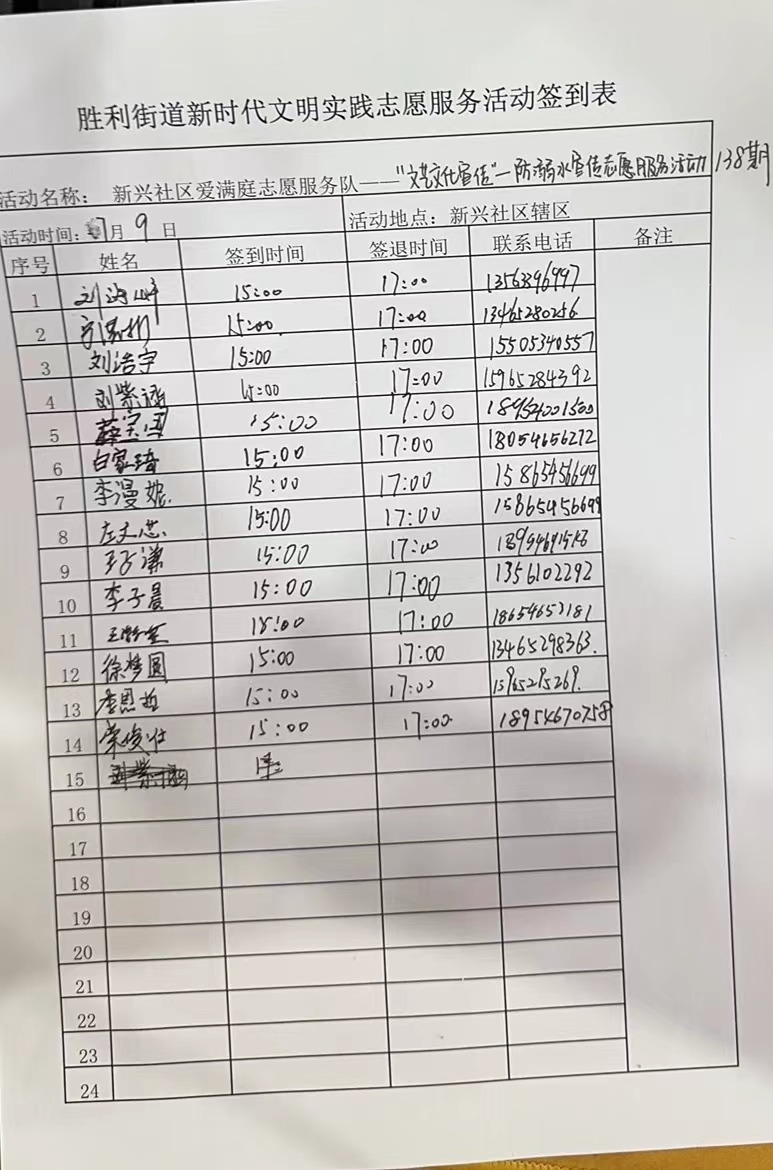 胜利街道新时代文明实践志愿服务活动签到表
活动名称： 新兴社区爱满庭志愿服务队——"文艺文化宣传"—防溺水宣传志愿服务活动 138期
活动时间：7月9日 活动地点：新兴社区辖区
序号 姓名 签到时间 签退时间 联系电话 备注
1 15:00 17:00 1356396997
2 15:00 17:00 13465280256
3 刘浩宇 15:00 17:00 15505340557
4 刘紫涵 15:00 17:00 15965284392
5 15:00 17:00 18954001500
6 白家琦 15:00 17:00 18054656272
7 李漫妮 15:00 17:00 15865456699
8 15:00 17:00 15865456699
9 15:00 17:00
10 李子晨 15:00 17:00 1356102292
11 15:00 17:00 18654653181
12 徐梦圆 15:00 17:00 13465298363.
13 李思哲 15:00 17:00 15965295269.
14 荣俊仕 15:00 17:00 18954670758
15
16
17
18
19
20
21
22
23
24